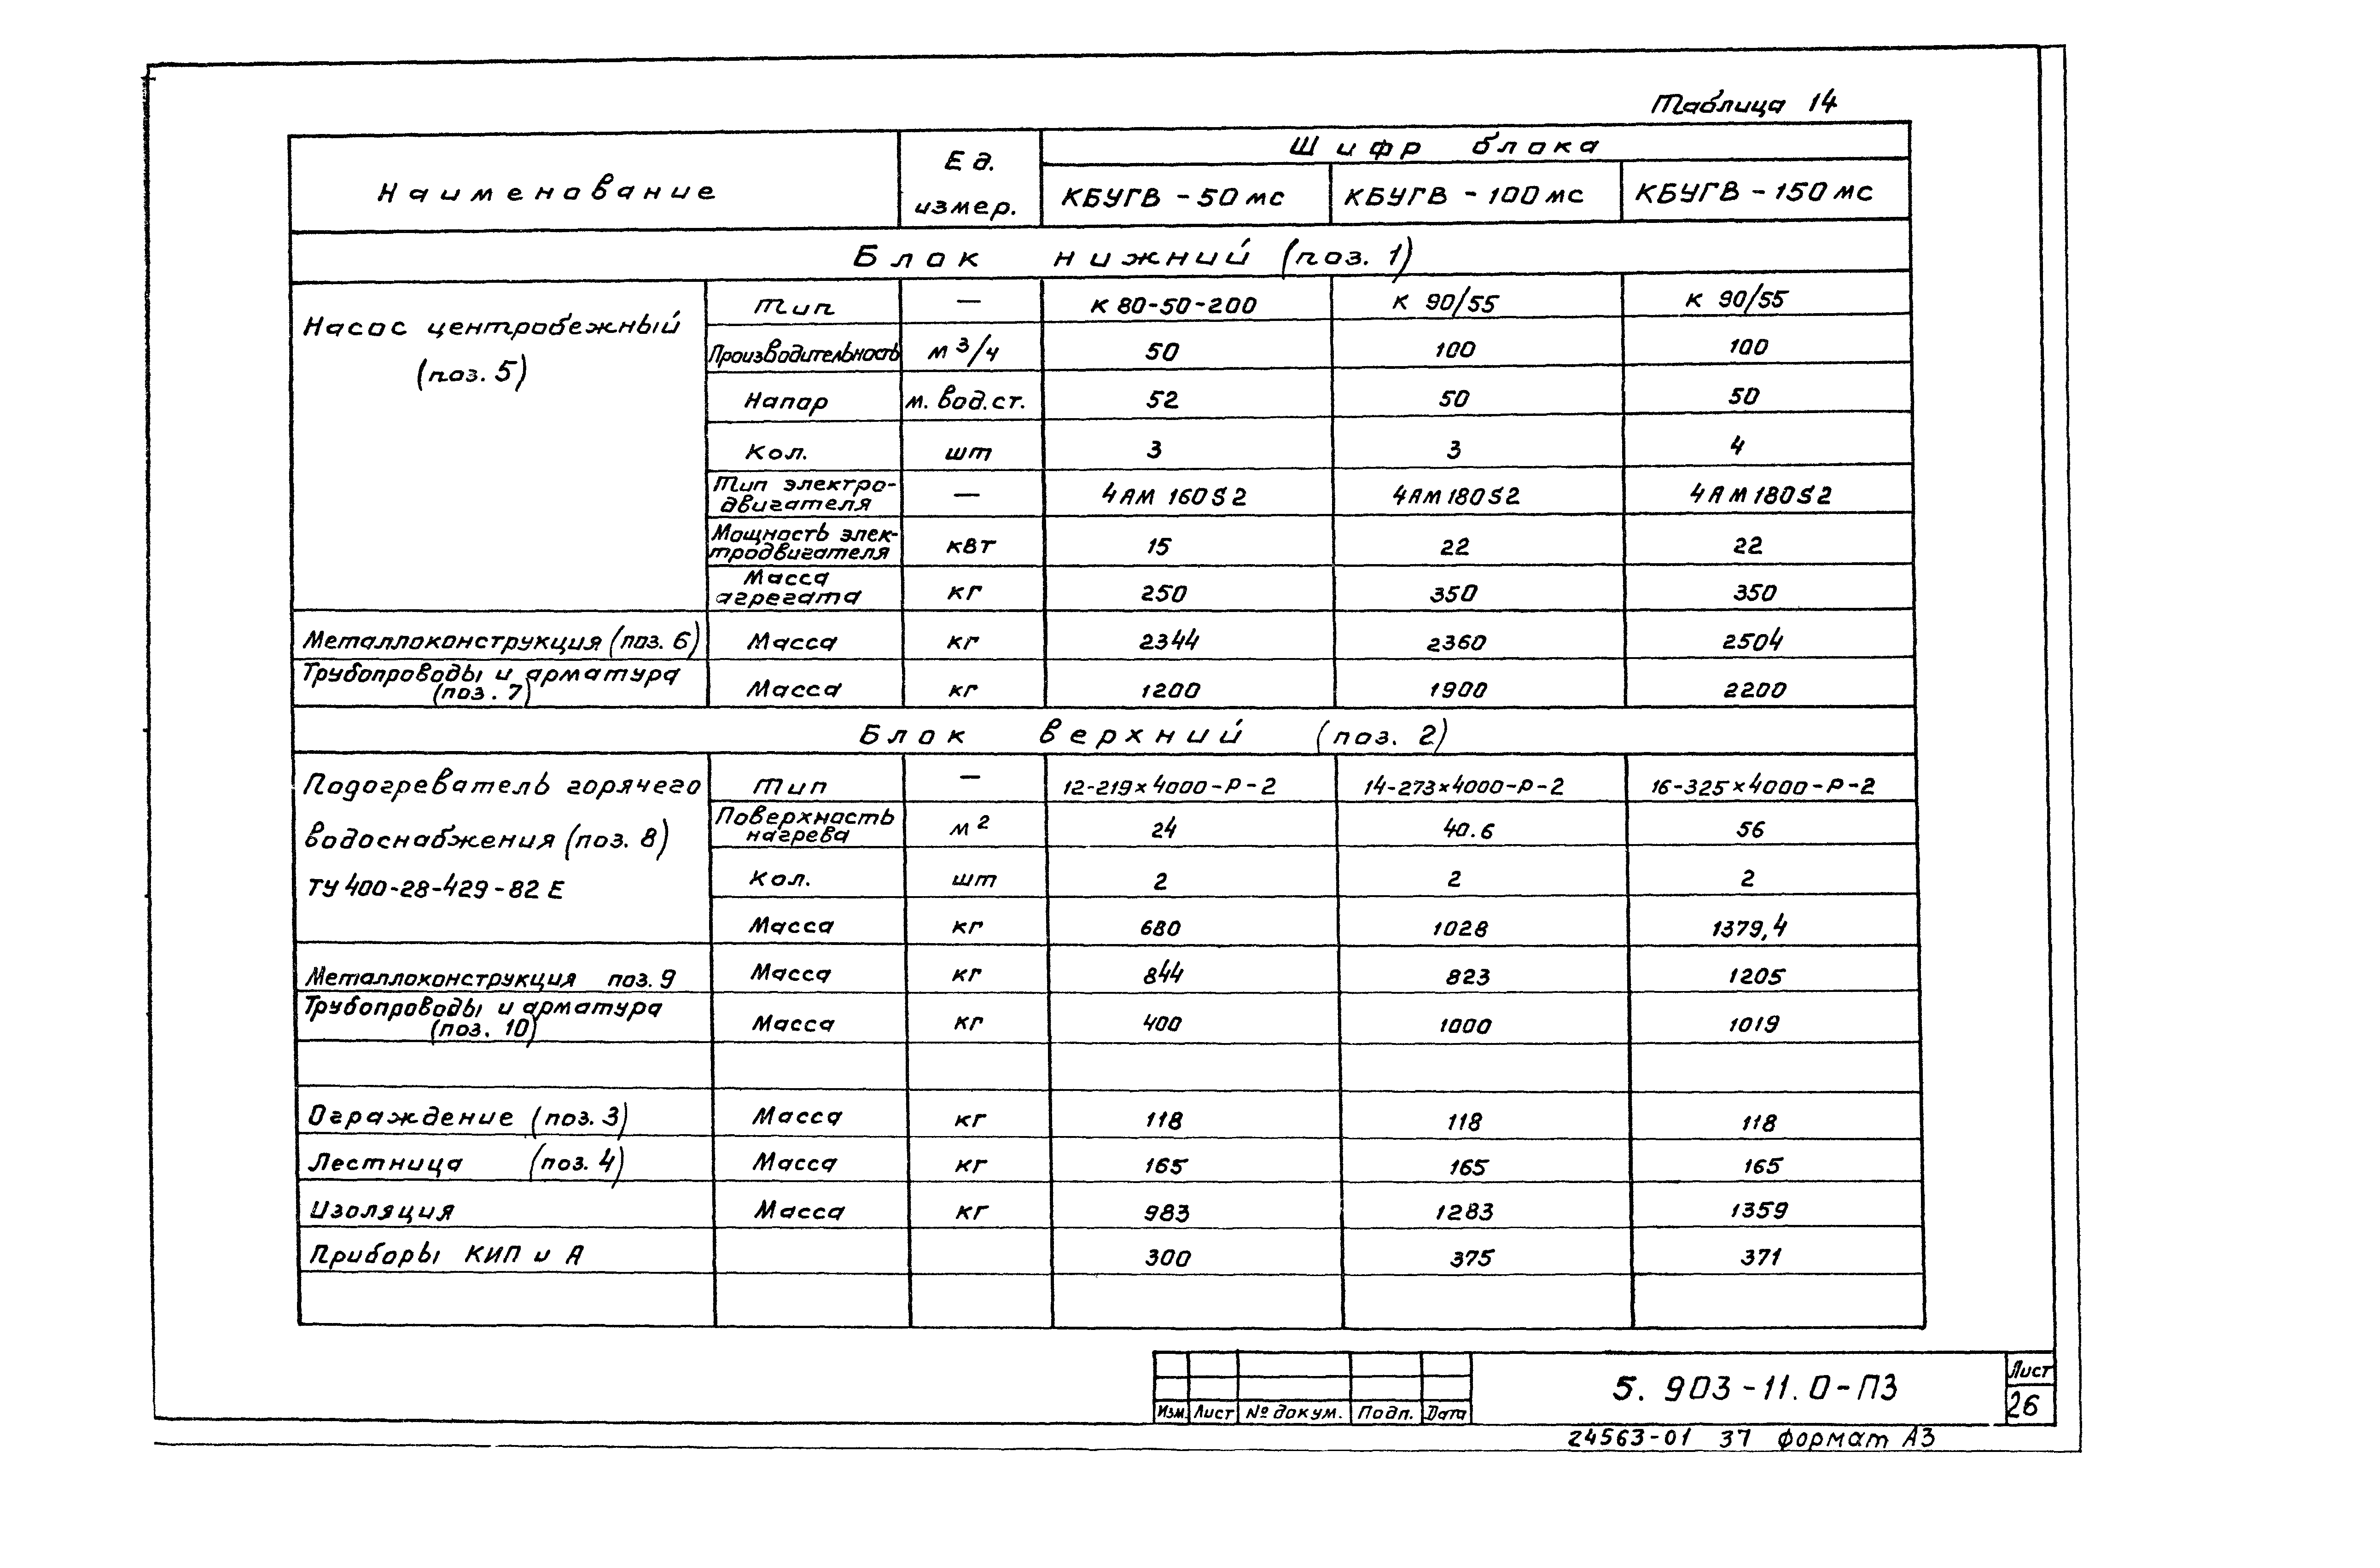 Таблица 14
Наименование Ед. измер. Шифр блока
КБУГВ - 50 мс КБУГВ - 100 мс КБУГВ - 150 мс
Блок нижний (поз. 1)
Насос центробежный (поз. 5) Тип — К 80-50-200 К 90/55 К 90/55
Производительность м³/ч 50 100 100
Напор м. вод. ст. 52 50 50
Кол. шт 3 3 4
Тип электро-
двигателя — 4АМ 160S2 4АМ180S2 4АМ180S2
Мощность элек-
тродвигателя кВт 15 22 22
Масса
агрегата кг 250 350 350
Металлоконструкция (поз. 6) Масса кг 2344 2360 2504
Трубопроводы и арматура
(поз. 7) Масса кг 1200 1900 2200
Блок верхний (поз. 2)
Подогреватель горячего Тип — 12-219×4000-Р-2 14-273×4000-Р-2 16-325×4000-Р-2
водоснабжения (поз. 8) Поверхность
нагрева м² 24 40.6 56
ТУ 400-28-429-82 Е Кол. шт 2 2 2
Масса кг 680 1028 1379,4
Металлоконструкция поз. 9 Масса кг 844 823 1205
Трубопроводы и арматура
(поз. 10) Масса кг 400 1000 1019
Ограждение (поз. 3) Масса кг 118 118 118
Лестница (поз. 4) Масса кг 165 165 165
Изоляция Масса кг 983 1283 1359
Приборы КИП и А 300 375 371
Изм. Лист № докум. Подп. Дата
5. 903-11. 0-ПЗ
Лист
26
24563-01 37 формат А3